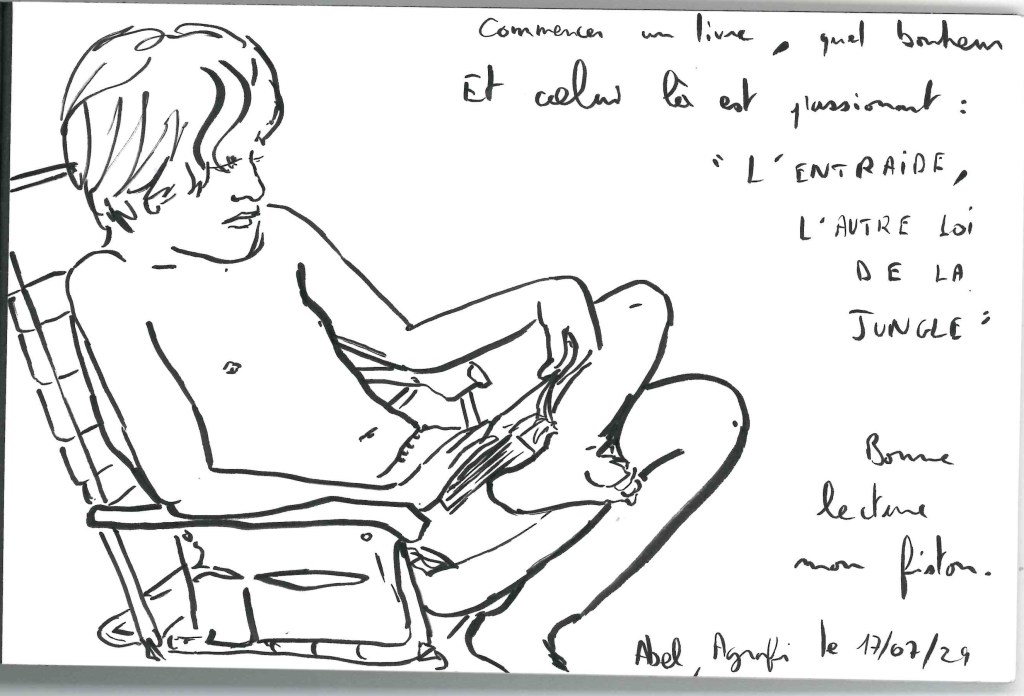 Commencer un livre, quel bonheur
Et celui là est passionant :
"L'ENTRAIDE,
L'AUTRE LOI
DE LA
JUNGLE"
Bonne
lecture
mon fiston.
Abel, le 17/07/29